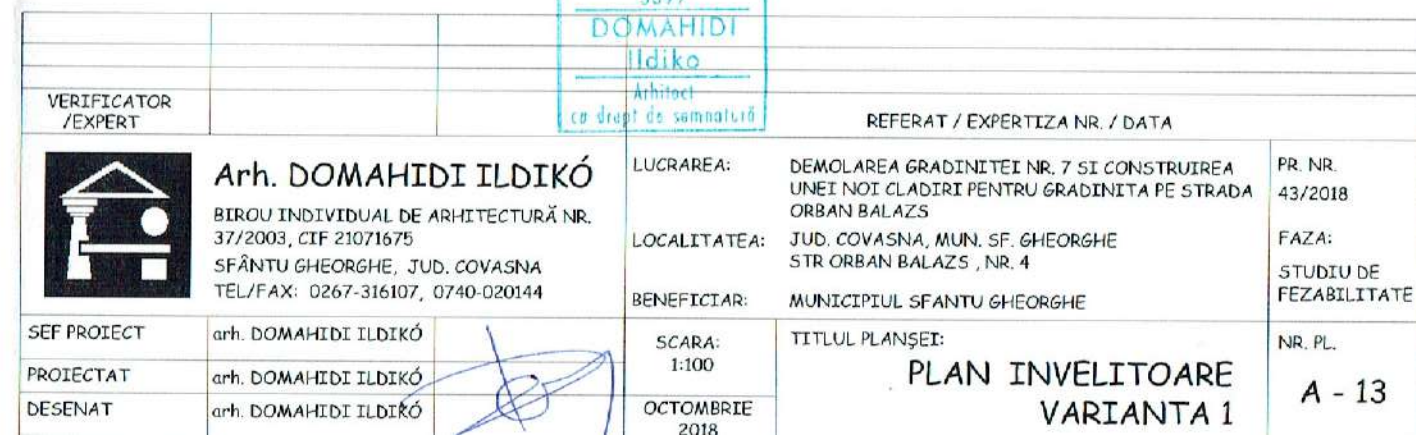 DOMAHIDI
Ildiko
Arhitect
cu drept de semnatură
VERIFICATOR
/EXPERT
REFERAT / EXPERTIZA NR. / DATA
Arh. DOMAHIDI ILDIKÓ
BIROU INDIVIDUAL DE ARHITECTURĂ NR.
37/2003, CIF 21071675
SFÂNTU GHEORGHE, JUD. COVASNA
TEL/FAX: 0267-316107, 0740-020144
LUCRAREA:
DEMOLAREA GRADINITEI NR. 7 SI CONSTRUIREA
UNEI NOI CLADIRI PENTRU GRADINITA PE STRADA
ORBAN BALAZS
LOCALITATEA:
JUD. COVASNA, MUN. SF. GHEORGHE
STR ORBAN BALAZS , NR. 4
BENEFICIAR:
MUNICIPIUL SFANTU GHEORGHE
PR. NR.
43/2018
FAZA:
STUDIU DE
FEZABILITATE
SEF PROIECT
arh. DOMAHIDI ILDIKÓ
PROIECTAT
arh. DOMAHIDI ILDIKÓ
DESENAT
arh. DOMAHIDI ILDIKÓ
SCARA:
1:100
OCTOMBRIE
2018
TITLUL PLANŞEI:
PLAN INVELITOARE
VARIANTA 1
NR. PL.
A - 13